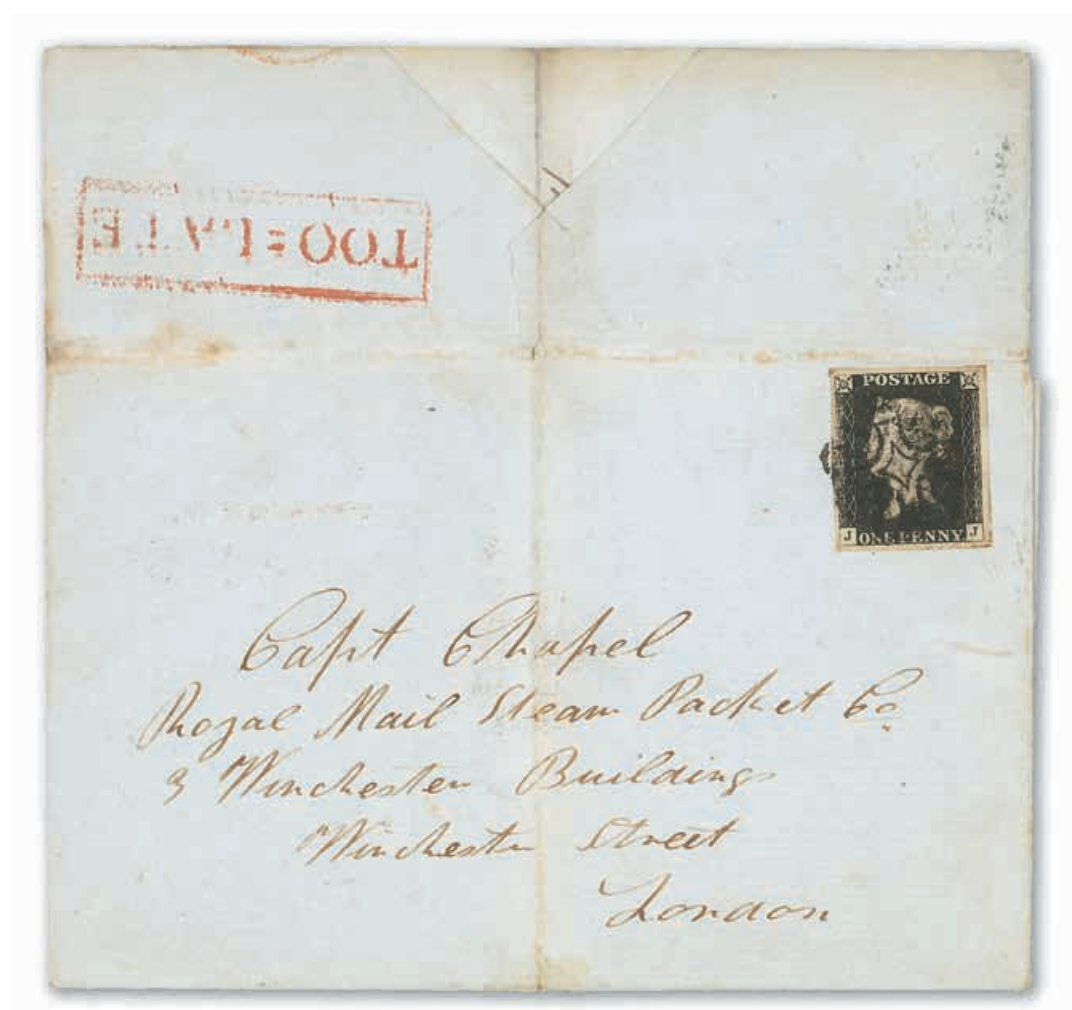 TOO=LATE
POSTAGE
J ONE PENNY J
Capt Chapel
Royal Mail Steam Packet Co
3 Winchester Buildings
Winchester Street
London